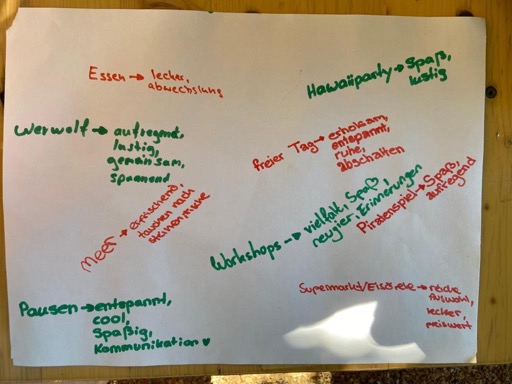 Essen → lecker,
abwechslung
Hawaiiparty → Spaß,
lustig
Werwolf → aufregend,
lustig,
gemeinsam,
spannend
freier Tag → erholsam,
entspannt,
ruhe,
abschalten
Meer → erfrischend,
tauchen nach
steinen
Workshops → vielfalt, Spaß,
neugier, Erinnerungen
Piratenspiel → Spaß,
aufregend
Pausen → entspannt,
cool,
Spaßig,
Kommunikation ♥
Supermarkt/Eisdiele →
Auswahl,
lecker,
preiswert